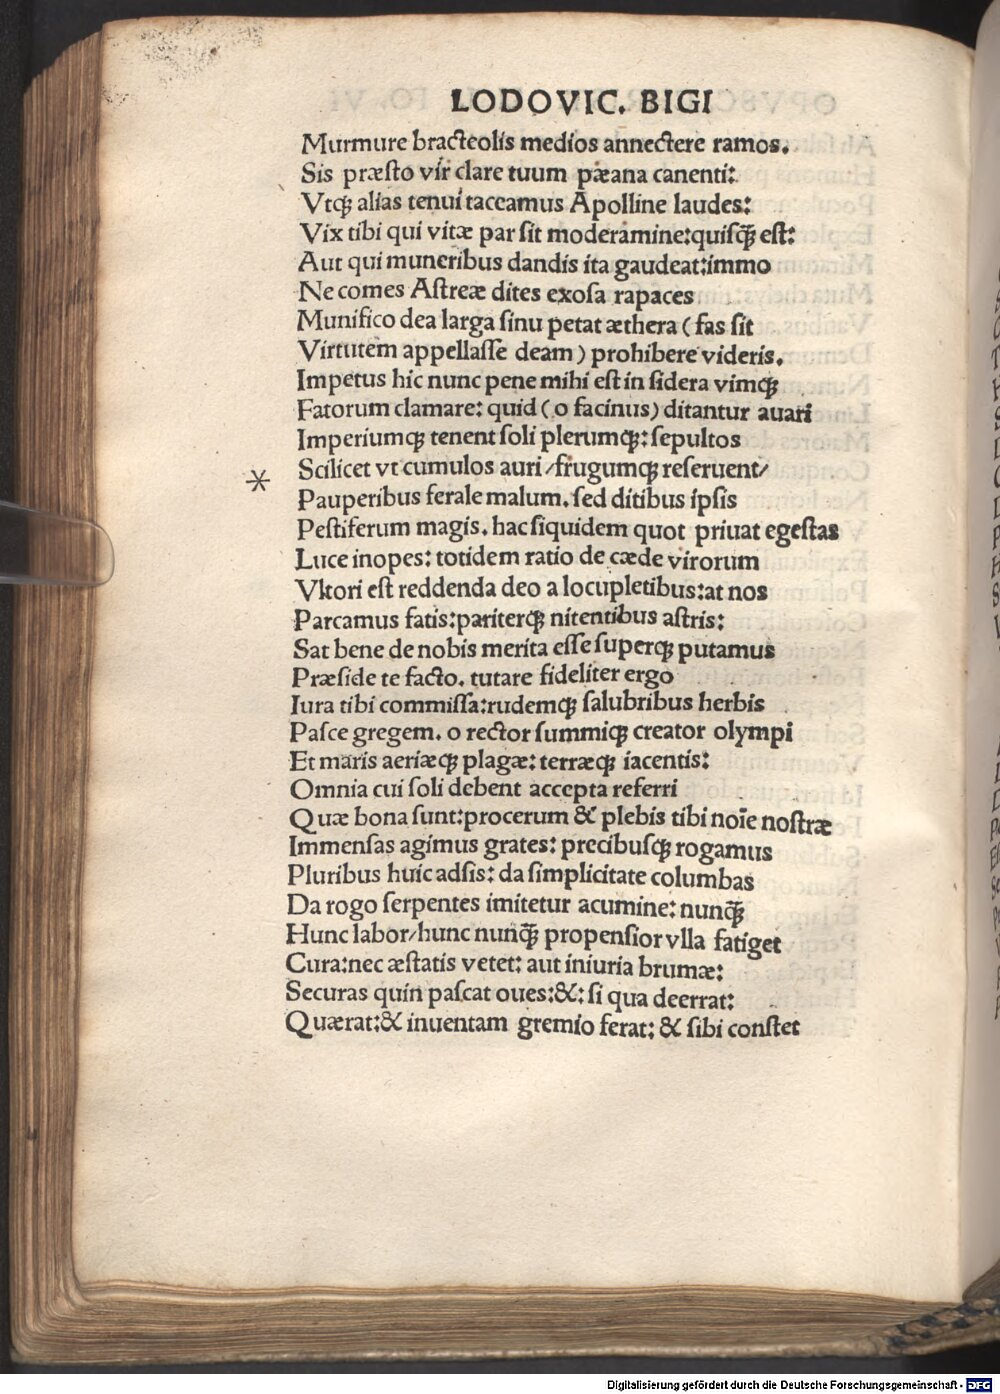 LODOVIC. BIGI
Murmure bracteolis medios annectere ramos.
Sis præsto vir clare tuum pæana canenti:
Vtqꝫ alias tenui taceamus Apolline laudes:
Vix tibi qui vitæ par sit moderamine:quisq̃ꝫ est:
Aut qui muneribus dandis ita gaudeat:immo
Ne comes Astreæ dites exosa rapaces
Munifico dea larga sinu petat æthera ( fas sit
Virtutem appellasse deam ) prohibere videris.
Impetus hic nunc pene mihi est in sidera vimqꝫ
Fatorum clamare: quid ( o facinus ) ditantur auari
Imperiumqꝫ tenent soli plerumqꝫ: sepultos
* Scilicet vt cumulos auri / frugumqꝫ reseruent/
Pauperibus ferale malum. sed ditibus ipsis
Pestiferum magis. hac siquidem quot priuat egestas
Luce inopes: totidem ratio de cæde virorum
Vltori est reddenda deo a locupletibus:at nos
Parcamus fatis:pariterqꝫ nitentibus astris:
Sat bene de nobis merita esse superqꝫ putamus
Præside te facto. tutare fideliter ergo
Iura tibi commissa:rudemqꝫ salubribus herbis
Pasce gregem. o rector summiqꝫ creator olympi
Et maris aeriæqꝫ plagæ: terræqꝫ iacentis:
Omnia cui soli debent accepta referri
Quæ bona sunt:procerum & plebis tibi noīe nostræ
Immensas agimus grates: precibusqꝫ rogamus
Pluribus huic adsis: da simplicitate columbas
Da rogo serpentes imitetur acumine: nunq̃ꝫ
Hunc labor/hunc nunq̃ꝫ propensior vlla fatiget
Cura:nec æstatis vetet: aut iniuria brumæ:
Securas quin pascat oues:&: si qua deerrat:
Quærat:& inuentam gremio ferat: & sibi constet
Digitalisierung gefördert durch die Deutsche Forschungsgemeinschaft - DFG